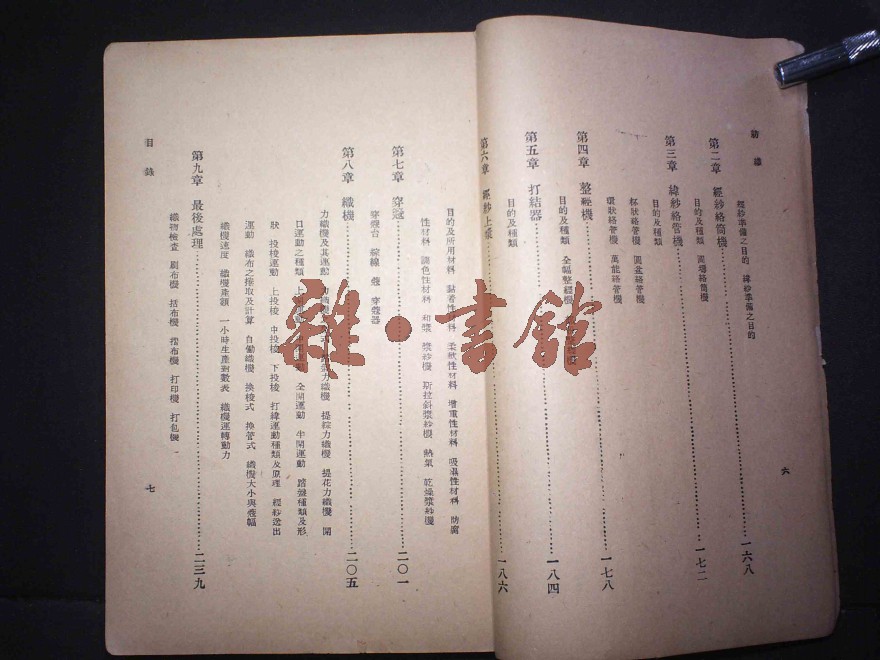 紡織
經紗準備之目的　緯紗準備之目的
第二章　經紗絡筒機……一六八
目的及種類　圓塲絡筒機
第三章　緯紗絡管機……一七二
目的及種類
杯狀絡管機　圓盆絡管機
環狀絡管機　萬能絡管機
第四章　整經機……一七八
目的及種類　全幅整經機
第五章　打結器……一八四
目的及種類
六
第六章　經紗上漿……一八六
目的及所用材料　黏着性材料　柔軟性材料　增重性材料　吸濕性材料　防腐
性材料　調色性材料　和漿　漿紗機　斯拉斜漿紗機　熱氣　乾燥漿紗機
第七章　穿冦……二〇一
穿綜台　綜線　穿蔻器
第八章　織機……二〇五
力織機及其運動　力織機　提綜力織機　提花力織機　開
口運動之種類　上　全開運動　半開運動　踏盤種類及形
狀　投梭運動　上投梭　中投梭　下投梭　打緯運動種類及原理　經紗送出
運動　織布之捲取及計算　自働織機　換梭式　換管式　織機大小與蔻幅
織機速度　織機產額　一小時生產碼數表　織機運轉動力
第九章　最後處理……二三九
織物檢查　刷布機　括布機　摺布機　打印機　打包機
目錄
七
雜·書館